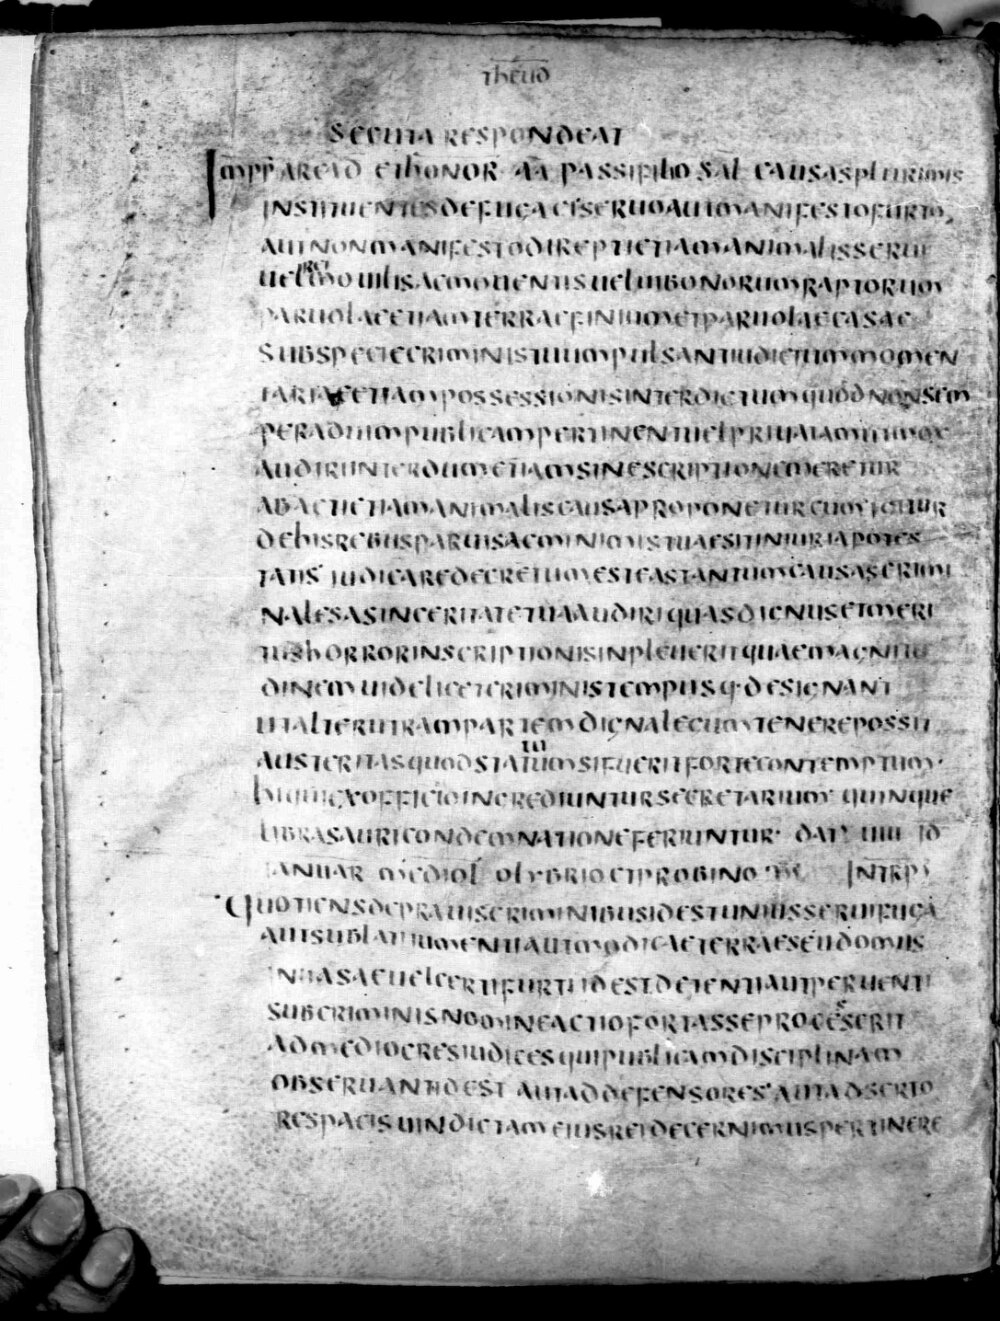 theud
SECUTA RESPONDEAT
IMPP ARCAD ET HONOR AA PASSIFILO SAL CAUSAS PLURIMIS
INSTITUENTES DE FUGACIS SERUO AUT MANIFESTO FURTO
AUT NON MANIFESTO DIREPTI ETIAM ANIMALIS SERUI
UEL MOUILIS AC MOUENTIS UEL UI BONORUM RAPTORUM
RCI
PARUOLAC ETIAM TERRAE FINIUM ET PARUOLAE CASAE
SUB SPECIE CRIMINIS TUUM PULSANT IUDICIUM MOMEN
TARIAE ETIAM POSSESSIONIS INTERDICTUM QUOD NON SEM
PER AD UIM PUBLICAM PERTINENT UEL PRIUATAM
AUDIRI INTERDUM ETIAM SINE SCRIPTIONE MERETUR
ABACTI ETIAM ANIMALIS CAUSA PROPONETUR CUM IGITUR
DE HIS REBUS PARUIS AC MINIMIS TUAE SIT INIURIA POTES
TATIS IUDICARE DECRETUM EST EAS TANTUM CAUSAS CRIMI
NALES A SINCERITATE TUA AUDIRI QUAS DIGNUS ET MERI
TUS HORROR INSCRIPTIONIS INPLEUERIT QUAE MAGNITU
DINEM UIDELICET CRIMINIS TEMPUSQ· DESIGNANT
UT ALTERUTRAM PARTEM DIGNA LEGUM TENERE POSSIT
AUSTERITAS QUOD STATUUM SI FUERIT FORTE CONTEMPTUM·
TU
HI QUI EX OFFICIO INGREDIUNTUR SECRETARIUM QUINQUE
LIBRAS AURI CONDEMNATIONE FERIUNTUR· DAT· IIII ID
IANUAR MEDIOL OLYBRIO ET PROBINO CC INTRP
QUOTIENS DE PRAUIS CRIMINIBUS ID EST UNIUS SERUI FUGA
AUT SUBLATI IUMENTI AUT MODICAE TERRAE SEU DOMUS
INUASAE UEL CERTI FURTI ID EST DETENTI AUT PERUENTI
SUB CRIMINIS NOMINE ACTIO FORTASSE PROCESERIT
S
AD MEDIOCRES IUDICES QUI PUBLICAM DISCIPLINAM
OBSERUANT ID EST AUT AD DEFENSORES AUT ADSERTO
RES PACIS UINDICTAM EIUS REI DECERNIMUS PERTINERE